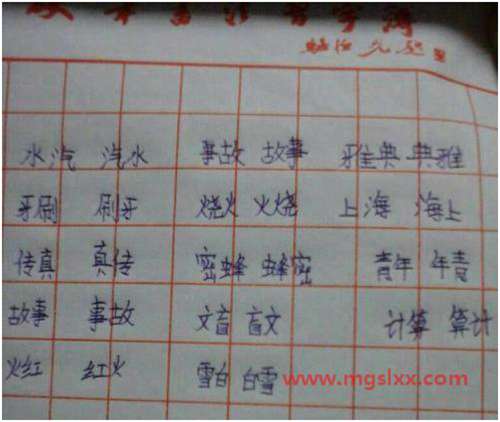 水汽 汽水 事故 故事 雅典 典雅
牙刷 刷牙 烧火 火烧 上海 海上
传真 真传 密蜂 蜂密 青年 年青
故事 事故 文盲 盲文 计算 算计
火红 红火 雪白 白雪
www.mgslxx.com